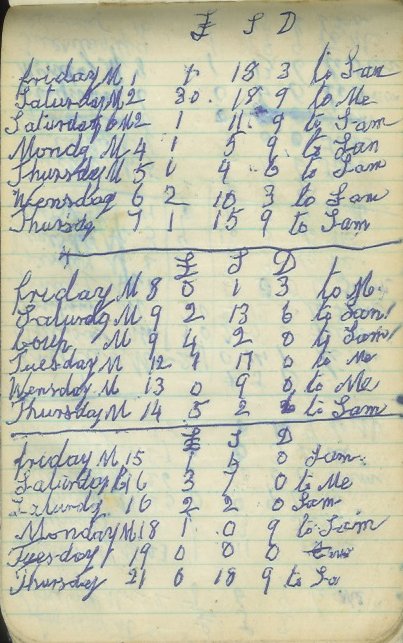 £ S D
friday M 1 1 18 3 to Sam
Saturday M 2 30. 18 9 to Me
Saturday M2 1 11 9 to Sam
Mondg M 4 1 5 9 to San
Thursday M 5 1 4 6 to Sam
Wensdag 6 2 10 3 to Sam
Thursdg 7 1 15 9 to Sam
£ S D
friday M 8 0 1 3 to M
Saturdg M 9 2 13 6 to Sam!
M 9 4 2 0 to Sam!
Tuesday M 12 1 17 0 to Me
Wensday M 13 0 9 0 to Me
Thursday M 14 5 2 to Sam
£ S D
friday M 15 1 5 0 Sam.
Saturday 16 3 7 0 to Me
16 2 2 0 Sam
Monday M 18 1 0 9 to Sam
Tuesday 19 0 0 0
Thursday 21 6 18 9 to Sa